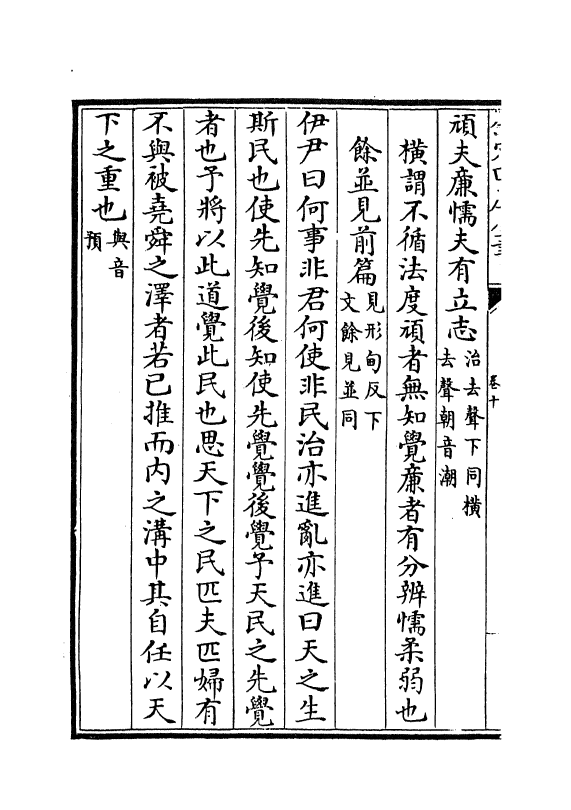 頑夫廉懦夫有立志治去聲下同橫去聲朝音潮
橫謂不循法度頑者無知覺廉者有分辨懦柔弱也
餘並見前篇見形甸反下文餘見並同
伊尹曰何事非君何使非民治亦進亂亦進曰天之生
斯民也使先知覺後知使先覺覺後覺予天民之先覺
者也予將以此道覺此民也思天下之民匹夫匹婦有
不與被堯舜之澤者若已推而內之溝中其自任以天
下之重也與音預
卷十